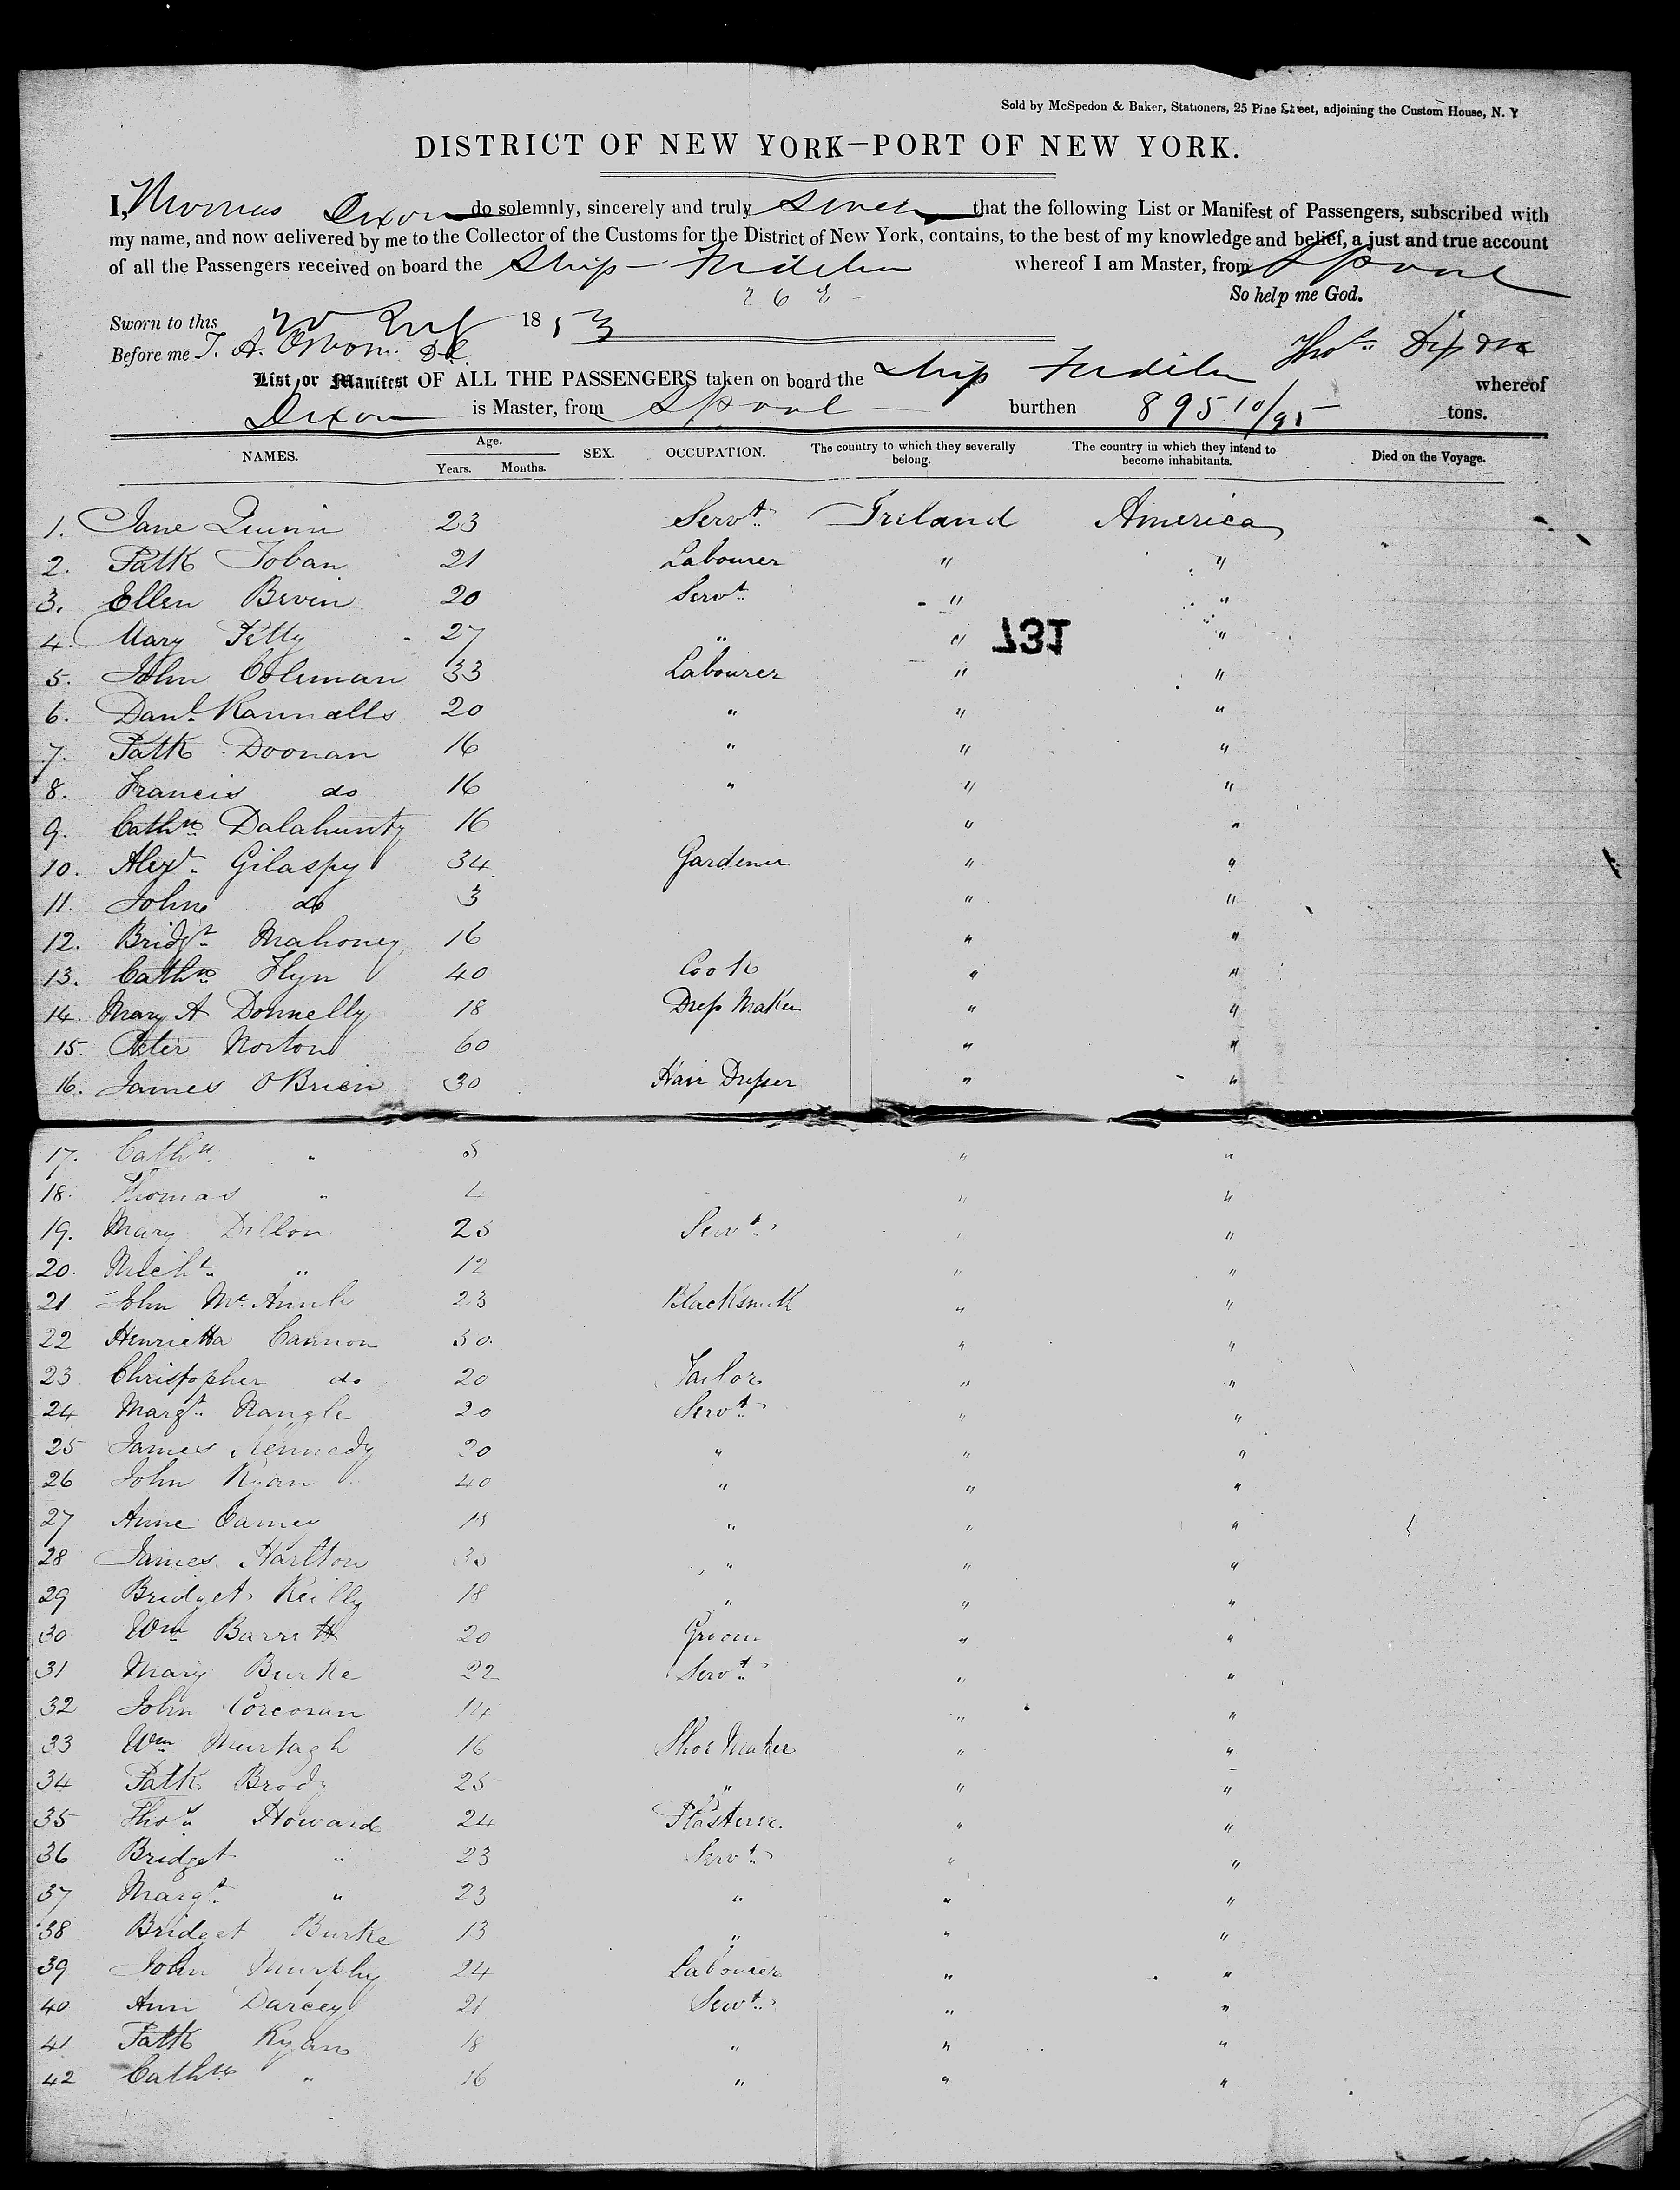 Sold by McSpedon & Baker, Stationers, 25 Pine Street, adjoining the Custom House, N. Y
DISTRICT OF NEW YORK—PORT OF NEW YORK.
I, Thomas Dixon do solemnly, sincerely and truly swear that the following List or Manifest of Passengers, subscribed with
my name, and now delivered by me to the Collector of the Customs for the District of New York, contains, to the best of my knowledge and belief, a just and true account
of all the Passengers received on board the Ship whereof I am Master, from Lpool
So help me God.
Sworn to this 1853
Before me T. A. Osborn. D.C. Thos. Dixon
List or Manifest OF ALL THE PASSENGERS taken on board the Ship whereof
Dixon is Master, from Lpool burthen 895 10/95 tons.
NAMES. Age. Years. Months. SEX. OCCUPATION. The country to which they severally belong. The country in which they intend to become inhabitants. Died on the Voyage.
1. Jane Quinn 23 Servt. Ireland America
2. Patk Toban 21 Labourer " "
3. Ellen Bevin 20 Servt. " "
4. Mary Fitty 27 " " "
731
5. John Coleman 33 Labourer " "
6. Danl. Rannalls 20 " " "
7. Patk Doonan 16 " " "
8. Francis do 16 " " "
9. Cathn. Dalahunty 16 " "
10. Alexr. Gilaspy 34 Gardener " "
11. John do 3 " "
12. Bridgt. Mahoney 16 " "
13. Cathn. Flyn 40 Cook " "
14. Mary A Donnelly 18 Dress Maker " "
15. Peter Norton 60 " "
16. James O'Brien 30 Hair Dresser " "
17. Cathn. " " "
18. Thomas " " "
19. Mary Dillon 25 Servt. " "
20. Michl. " 12 " "
21 John Mc 23 Blacksmith " "
22 Henrietta Cannon 30 " "
23 Christopher do 20 Tailor " "
24 Margt. Nangle 20 Servt. " "
25 James Kennedy 20 " " "
26 John Ryan 40 " " "
27 Anne Carney " " "
28 James Harlton 30 " " "
29 Bridget Reilly 18 " " "
30 Wm Barrett 20 Groom " "
31 Mary Burke 22 Servt. " "
32 John Corcoran 14 " "
33 Wm Murtagh 16 Shoe Maker " "
34 Patk Brody 25 " " "
35 Thos. Howard 24 Plasterer " "
36 Bridget " 23 Servt. " "
37 Margt. " 23 " " "
38 Bridget Burke 13 " " "
39 John Murphy 24 Labourer " "
40 Ann Darcey 21 Servt. " "
41 Patk Ryan 18 " " "
42 Cathn. " 16 " " "